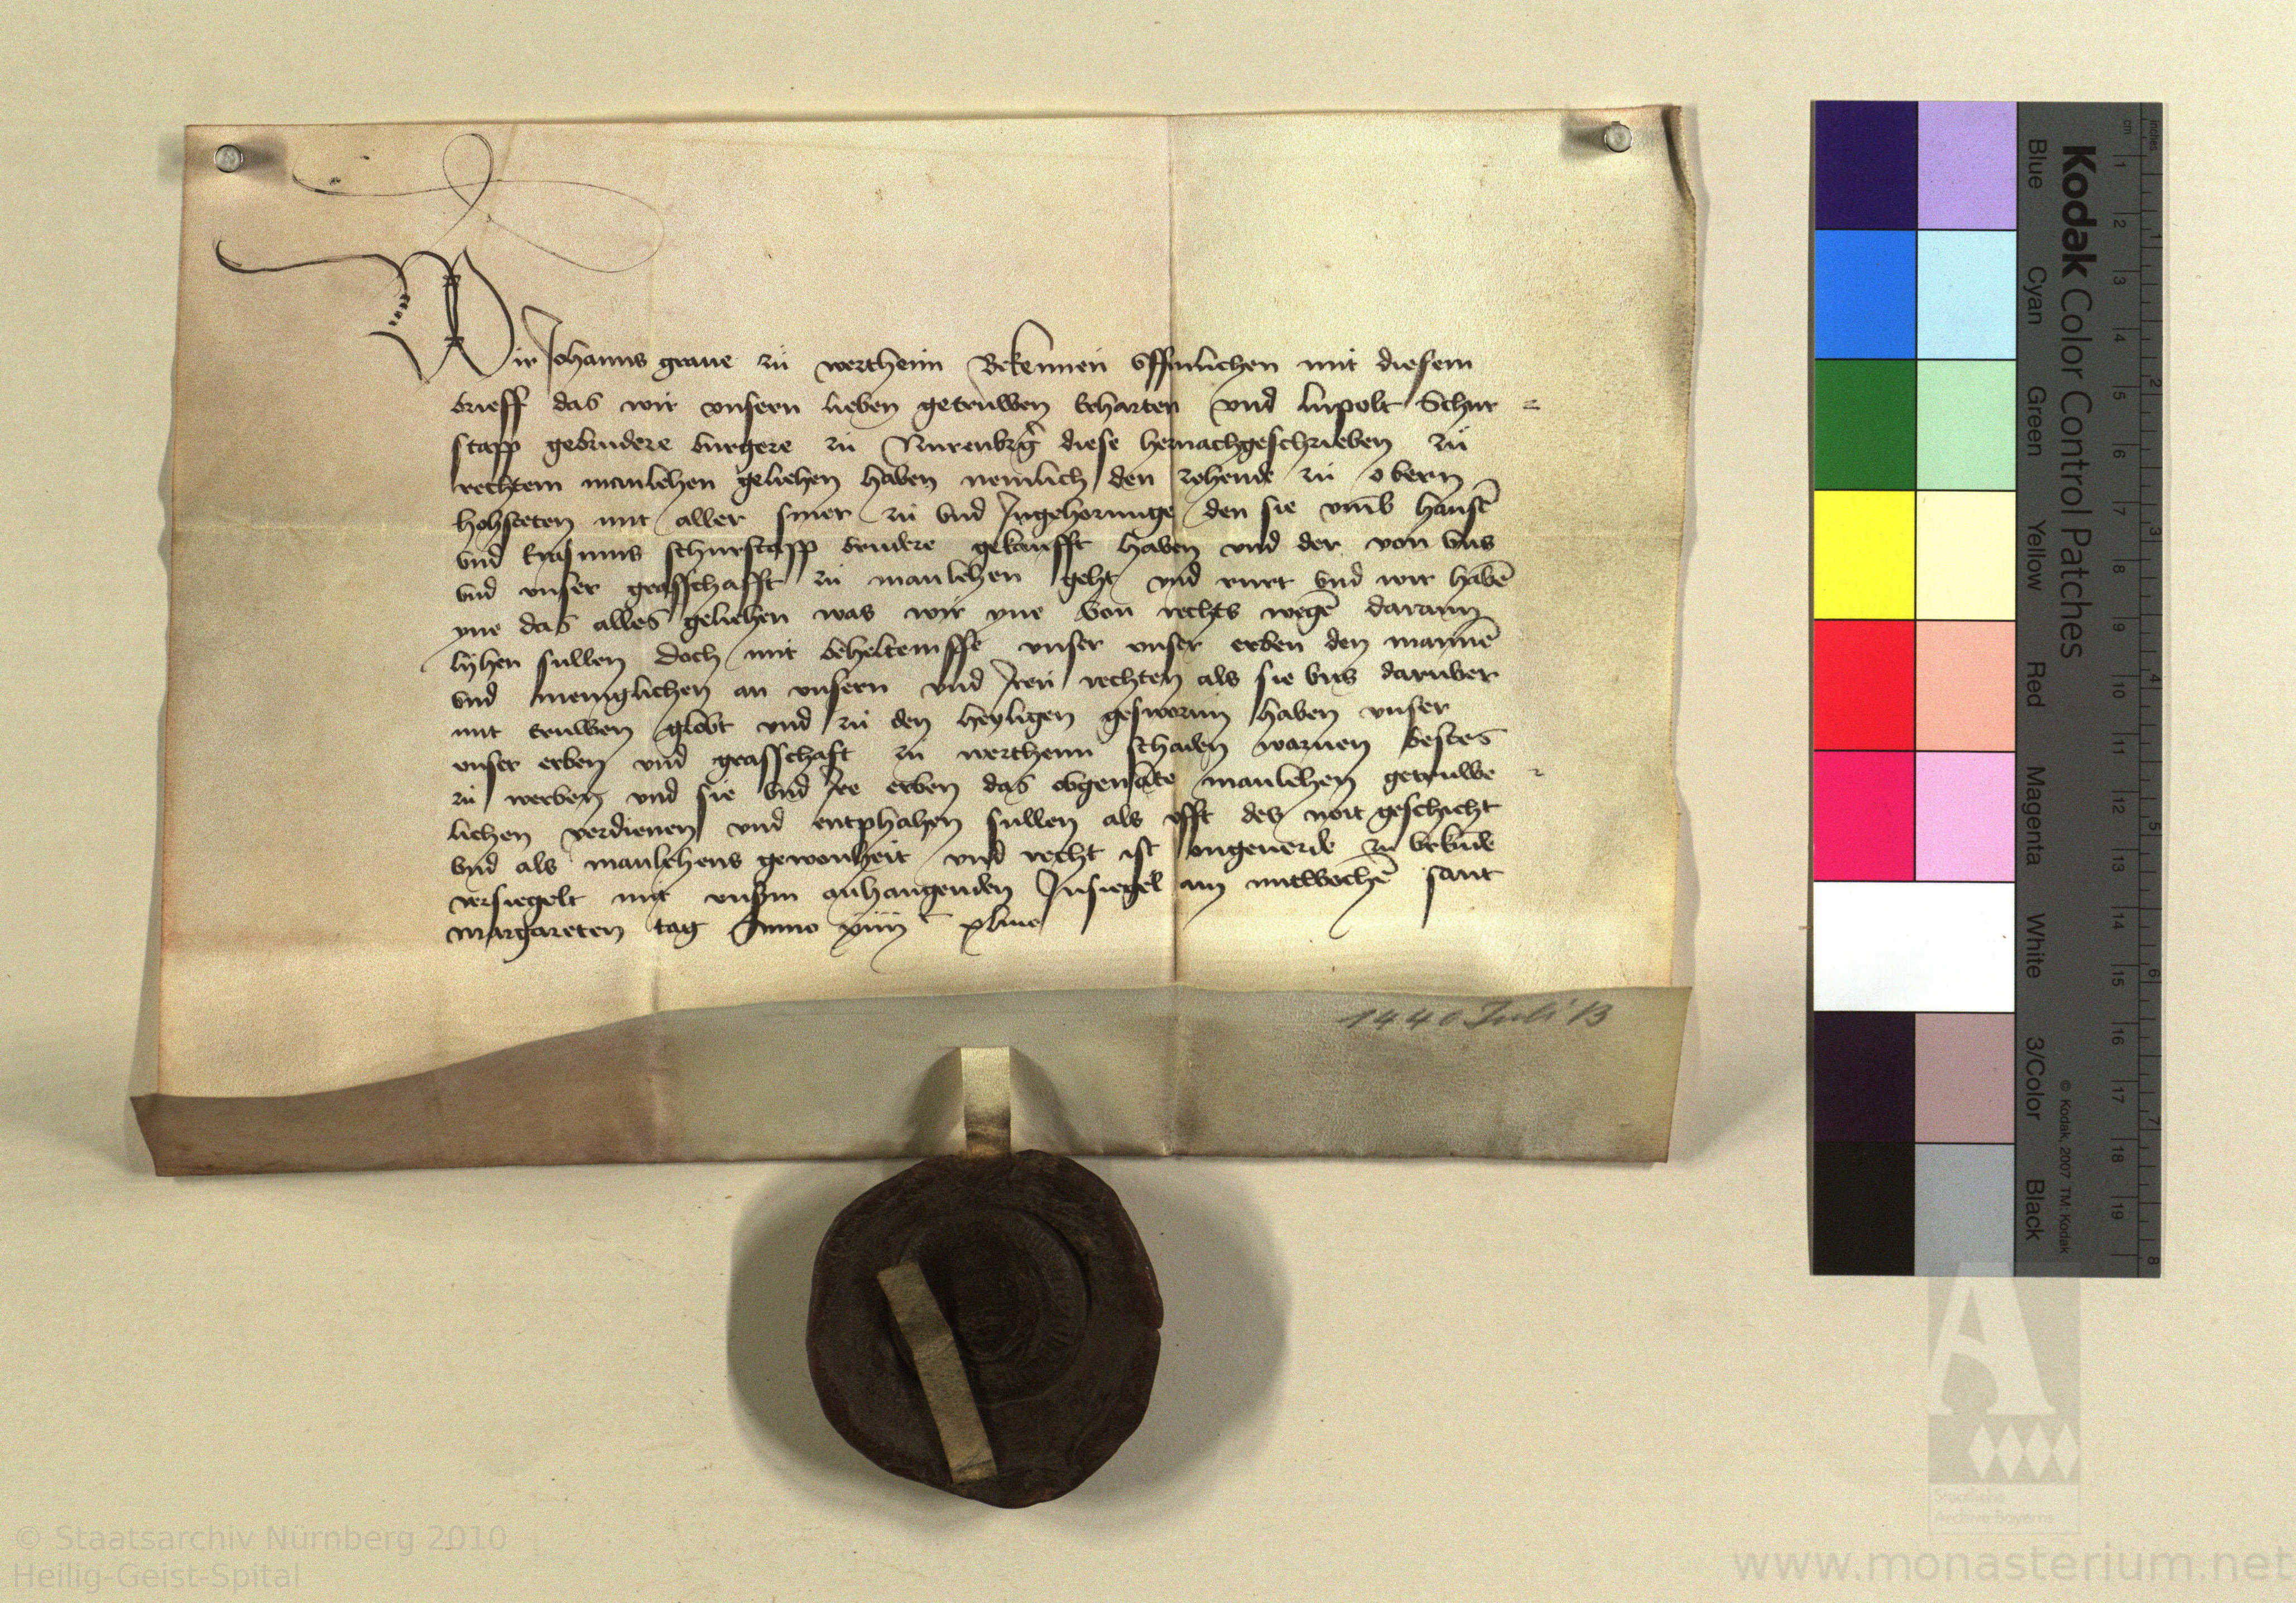 Wir Johanns graue zü wertheim Bekennen offinlichen mit diesem
brieff das wir vnsern lieben getruwen Erharten vnd lüpolt Schur =
stapp gebrudere burgere zü Nurenbrg diese hernachgeschrieben zü
rechtem manlehen geliehen haben nemlich den zehende zü obern
hohsteten mit aller siner zü vnd Ingehorunge den sie vmb hansē
vnd Erasmus schurstapp brudere gekaufft haben vnd der von vns
vnd vnser graffschafft zü manlehen geht vnd rurt vnd wir habē
yne das alles geliehen was wir yne von rechts wegē darann
lyhen sullen doch mit beheltenisse vnser vnser erben den mannē
vnd meniglichen an vnsern vnd Iren rechten als sie vns daruber
mit truwen globt vnd zü den heyligen gesworinn haben vnser
vnser erben vnd graffschaft zü wertheim schaden warnen bestes
zü werben vnd sie vnd Ire erben das obgenāte manlehen getruwe =
lichen verdienen vnd entphahen sullen als offt des noit geschicht
vnd als manlehens gewonheit vnd recht ist ongeuerde zu vrkūde
versiegelt mit vnßm anhangenden Insiegel am mitwochē sant
margareten tag Anno xiiii c xlmo
1440 Juli 13
Kodak Color Control Patches
Blue Cyan Green Yellow Red Magenta White 3/Color Black
© Kodak, 2007 TM: Kodak
inches 1 2 3 4 5 6 7 8
cm 1 2 3 4 5 6 7 8 9 10 11 12 13 14 15 16 17 18 19
© Staatsarchiv Nürnberg 2010
Heilig-Geist-Spital
Staatliche
Archive Bayerns
www.monasterium.net